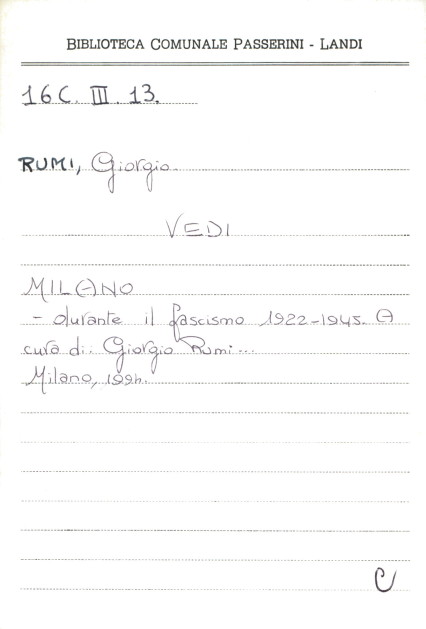 BIBLIOTECA COMUNALE PASSERINI - LANDI
16 C. III. 13.
RUMI, Giorgio
VEDI
MILANO
- durante il fascismo 1922-1945. A
cura di: Giorgio Rumi...
Milano, 1994.
C